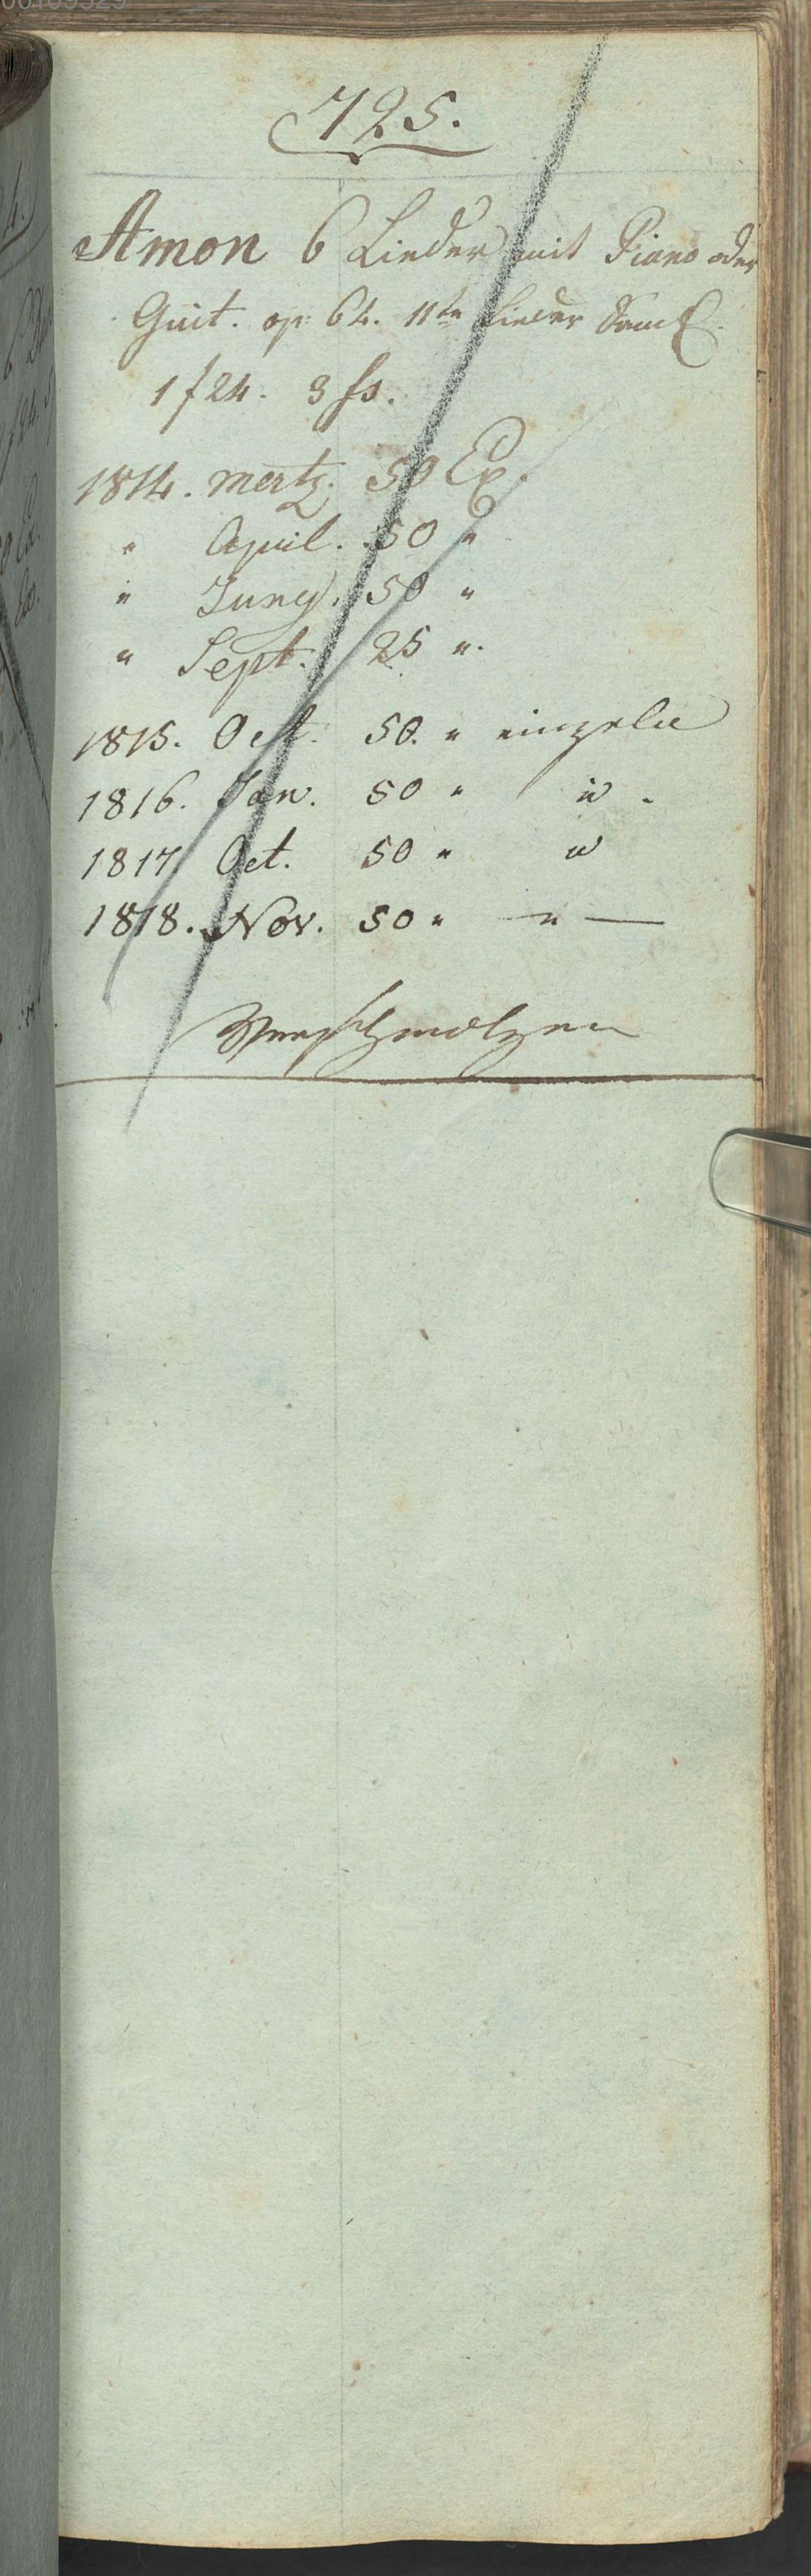 725.
Amon 6 Lieder mit Piano oder
Guit. op: 64. 11te Lieder Saml.
1 f 24. 3 fs.
1814. Mertz. 50 Ex.
" April. 50 "
" Juny. 50 "
" Sept. 25 ".
1815. Oct. 50. " einzeln
1816. Jan. 50 " " .
1817 Oct. 50 " "
1818. Nov. 50 " — " —
Verschmolzen